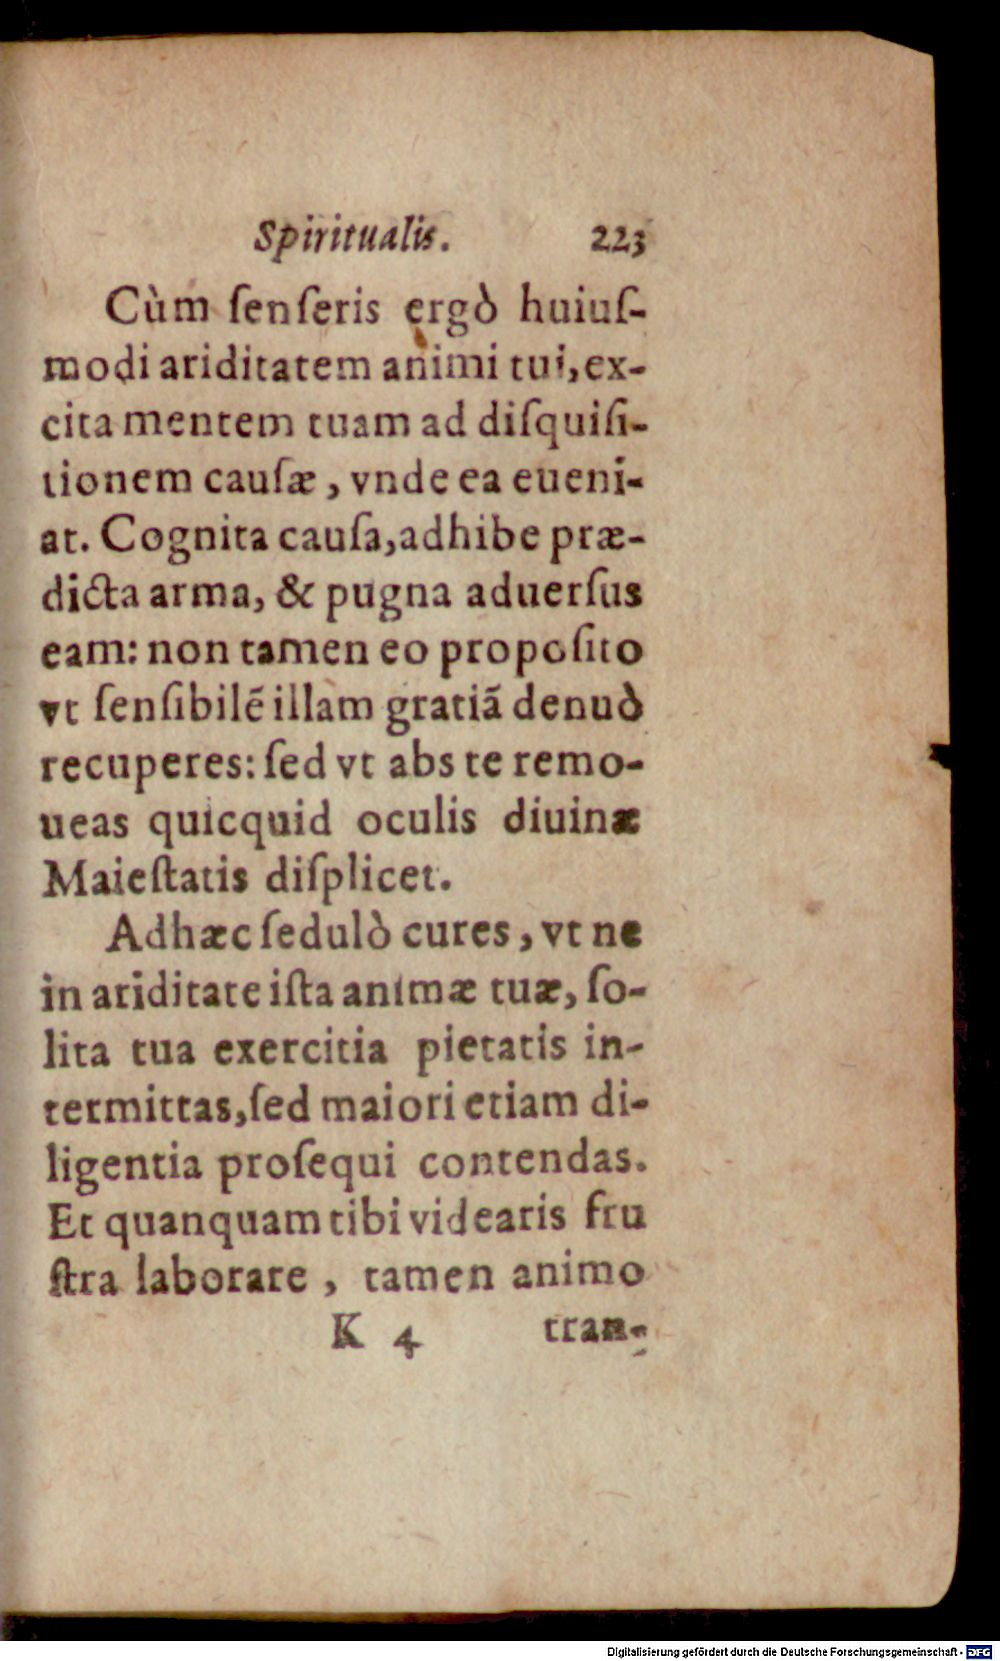 Spiritualis. 223
Cùm ſenſeris ergò huiuſ-
modi ariditatem animi tui, ex-
cita mentem tuam ad diſquiſi-
tionem cauſæ, vnde ea eueni-
at. Cognita cauſa, adhibe præ-
dicta arma, & pugna aduerſus
eam: non tamen eo propoſito
vt ſenſibilē illam gratiā denuò
recuperes: ſed vt abs te remo-
ueas quicquid oculis diuinæ
Maieſtatis diſplicet.
Adhæc ſedulò cures, vt ne
in ariditate iſta animæ tuæ, ſo-
lita tua exercitia pietatis in-
termittas, ſed maiori etiam di-
ligentia proſequi contendas.
Et quanquam tibi videaris fru
ſtra laborare, tamen animo
K 4 tran-
Digitalisierung gefördert durch die Deutsche Forschungsgemeinschaft - DFG